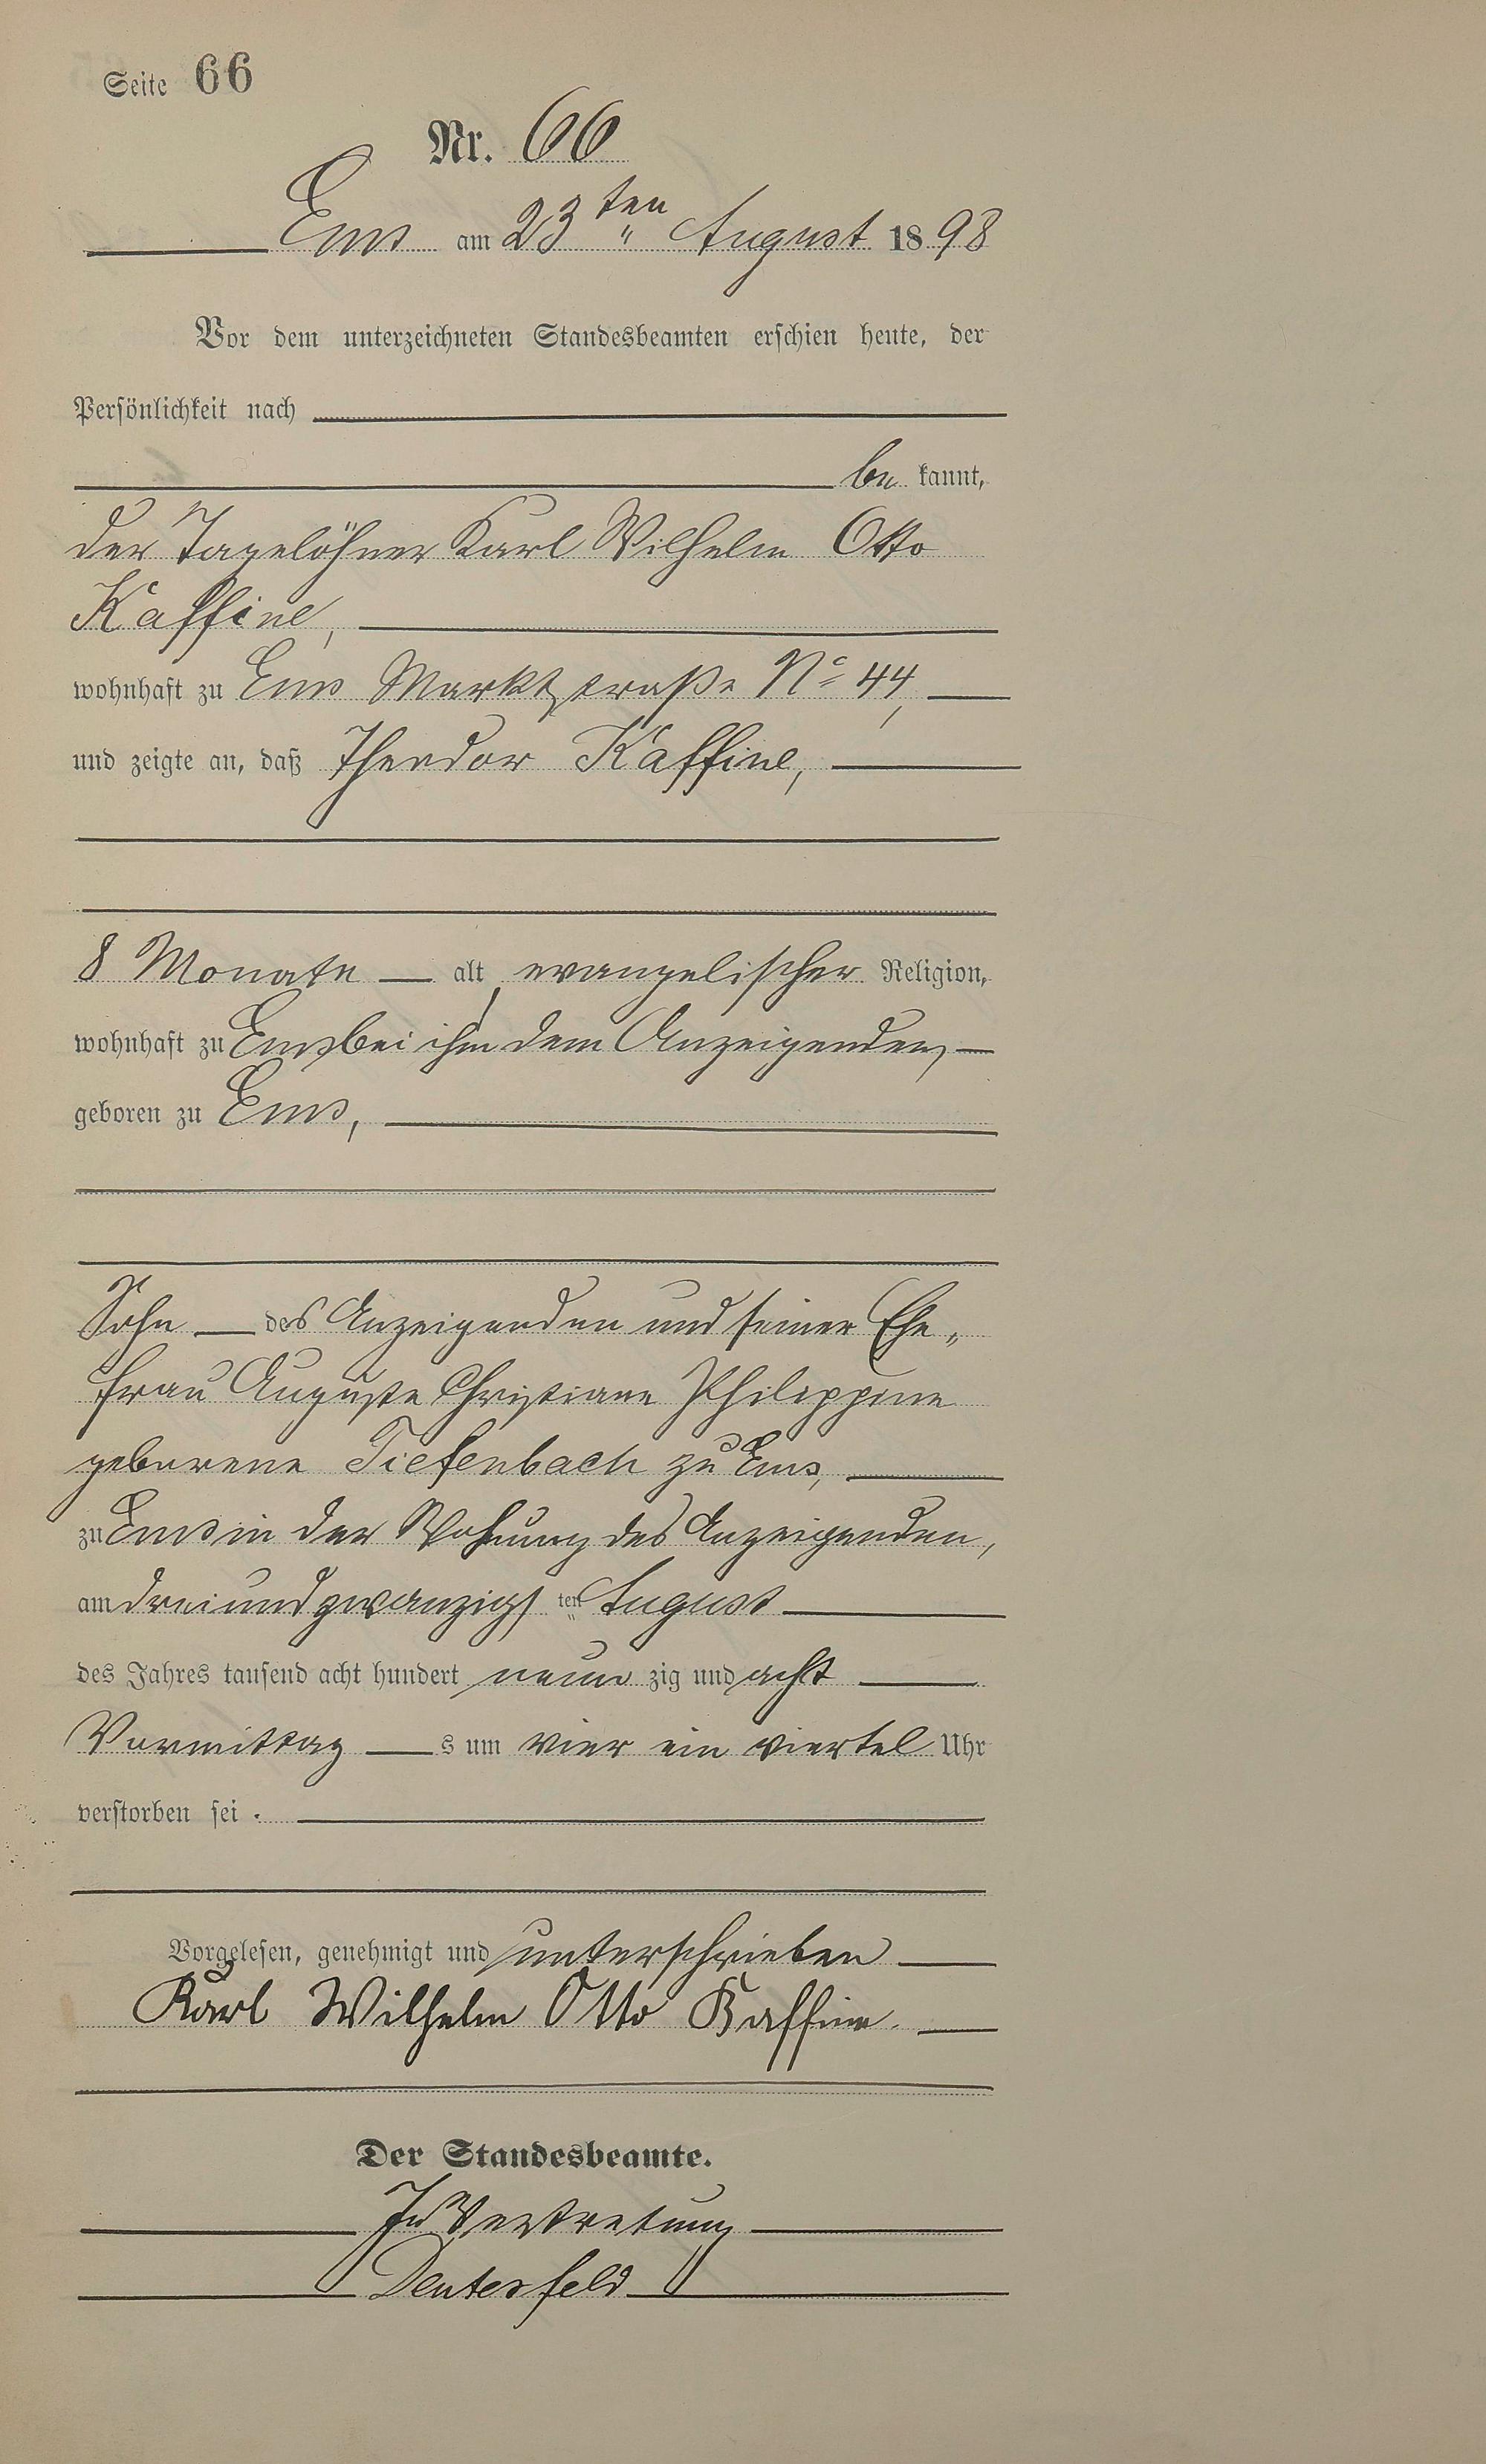 Seite 66
Nr. 66
Ems am 23ten August 1898
Vor dem unterzeichneten Standesbeamten erschien heute, der
Persönlichkeit nach
be kannt,
der Tagelöhner Karl Wilhelm Otto
Kaffine,
wohnhaft zu Ems Marktstraße No 44,
und zeigte an, daß Theodor Kaffine,
8 Monate — alt, evangelischer Religion,
wohnhaft zu Ems bei ihm dem Anzeigenden,
geboren zu Ems,
Sohn — des Anzeigenden und seiner Ehe„
frau Auguste Christiane Philippine
geborene Tiefenbach zu Ems,
zu Ems in der Wohnung des Anzeigenden,
am dreiundzwanzigsten August
des Jahres tausend acht hundert neun zig und acht
Vormittag — s um vier ein viertel Uhr
verstorben sei.
Vorgelesen, genehmigt und unterschrieben
Karl Wilhelm Otto Kaffine.
Der Standesbeamte.
In Vertretung